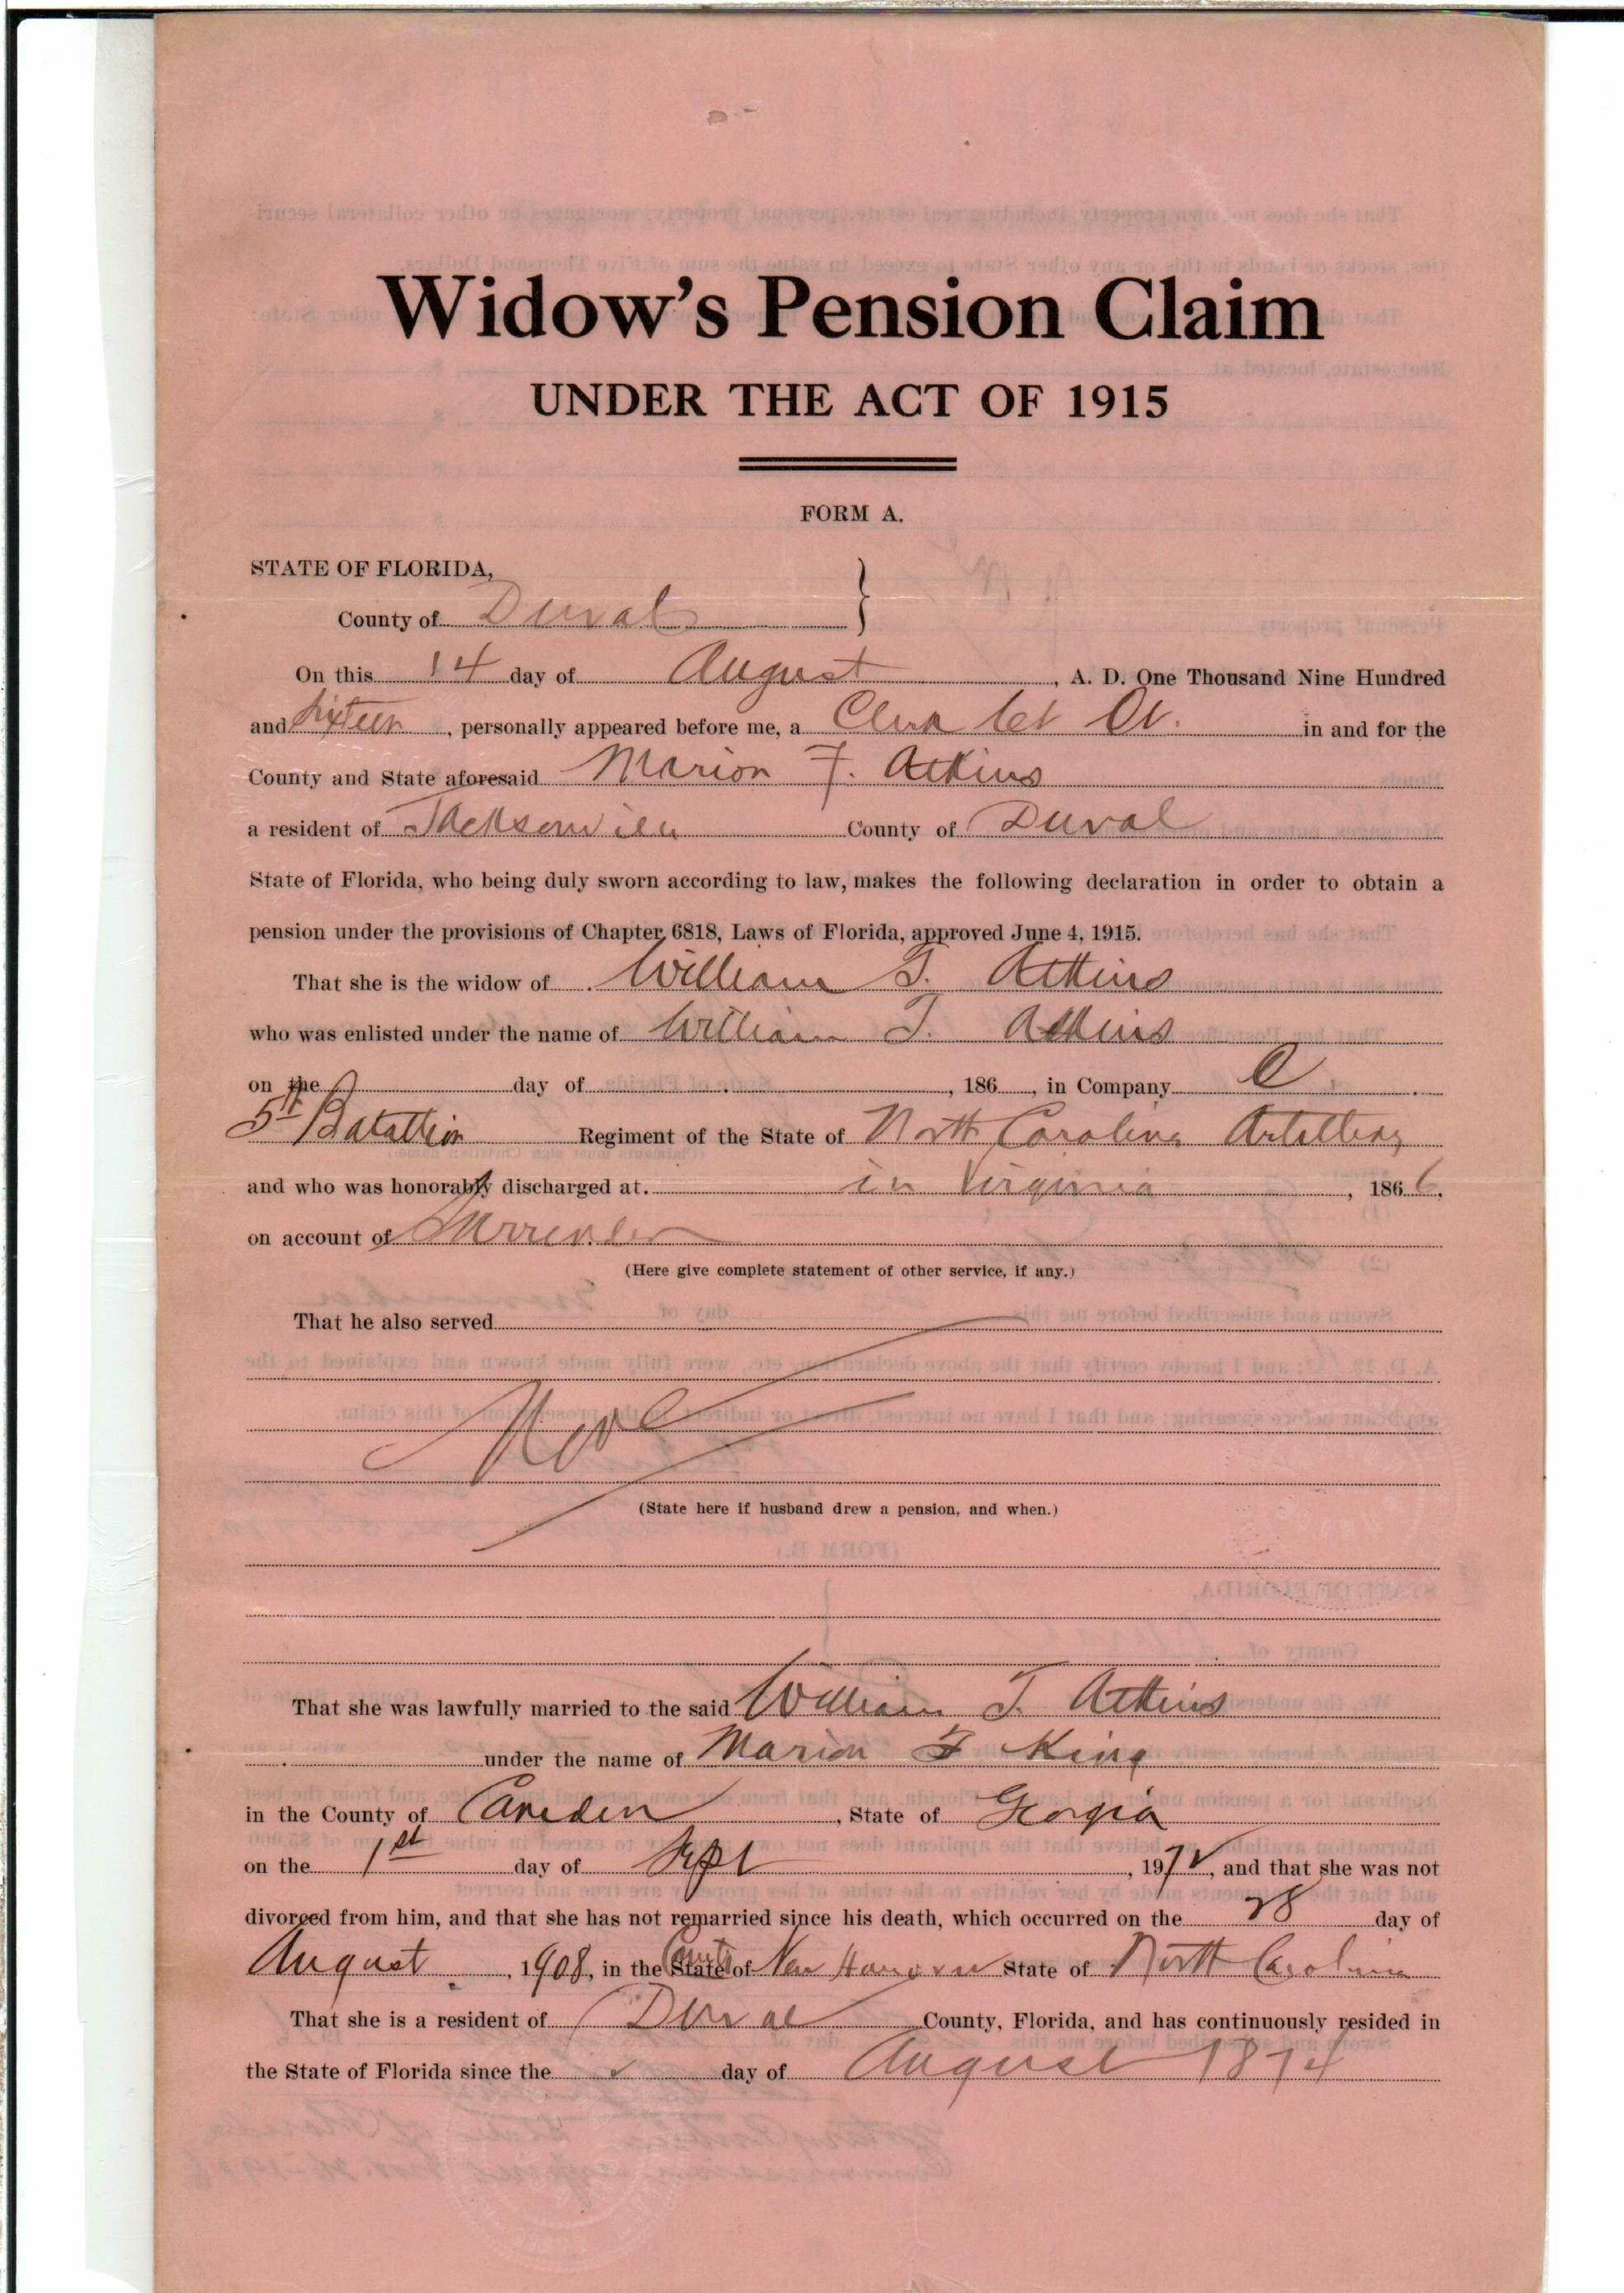 Widow's Pension Claim
UNDER THE ACT OF 1915
FORM A.
STATE OF FLORIDA,
County of Duval
On this 14 day of August, A. D. One Thousand Nine Hundred
and Sixteen, personally appeared before me, a Clerk in and for the
County and State aforesaid Marion F. Atkins
a resident of Jacksonville County of Duval
State of Florida, who being duly sworn according to law, makes the following declaration in order to obtain a
pension under the provisions of Chapter 6818, Laws of Florida, approved June 4, 1915.
That she is the widow of William T. Atkins
who was enlisted under the name of William T. Atkins
on the day of , 186 , in Company
Batallion Regiment of the State of North Carolina Artillery
and who was honorably discharged at in Virginia, 186
on account of Surrender
(Here give complete statement of other service, if any.)
That he also served
(State here if husband drew a pension, and when.)
That she was lawfully married to the said William T. Atkins
under the name of Marion F King
in the County of Camden, State of Georgia
on the 1st day of Sept, 19 , and that she was not
divorced from him, and that she has not remarried since his death, which occurred on the 28 day of
August, 1908, in the County State of New Hanover State of North Carolina
That she is a resident of Duval County, Florida, and has continuously resided in
the State of Florida since the day of August 1874